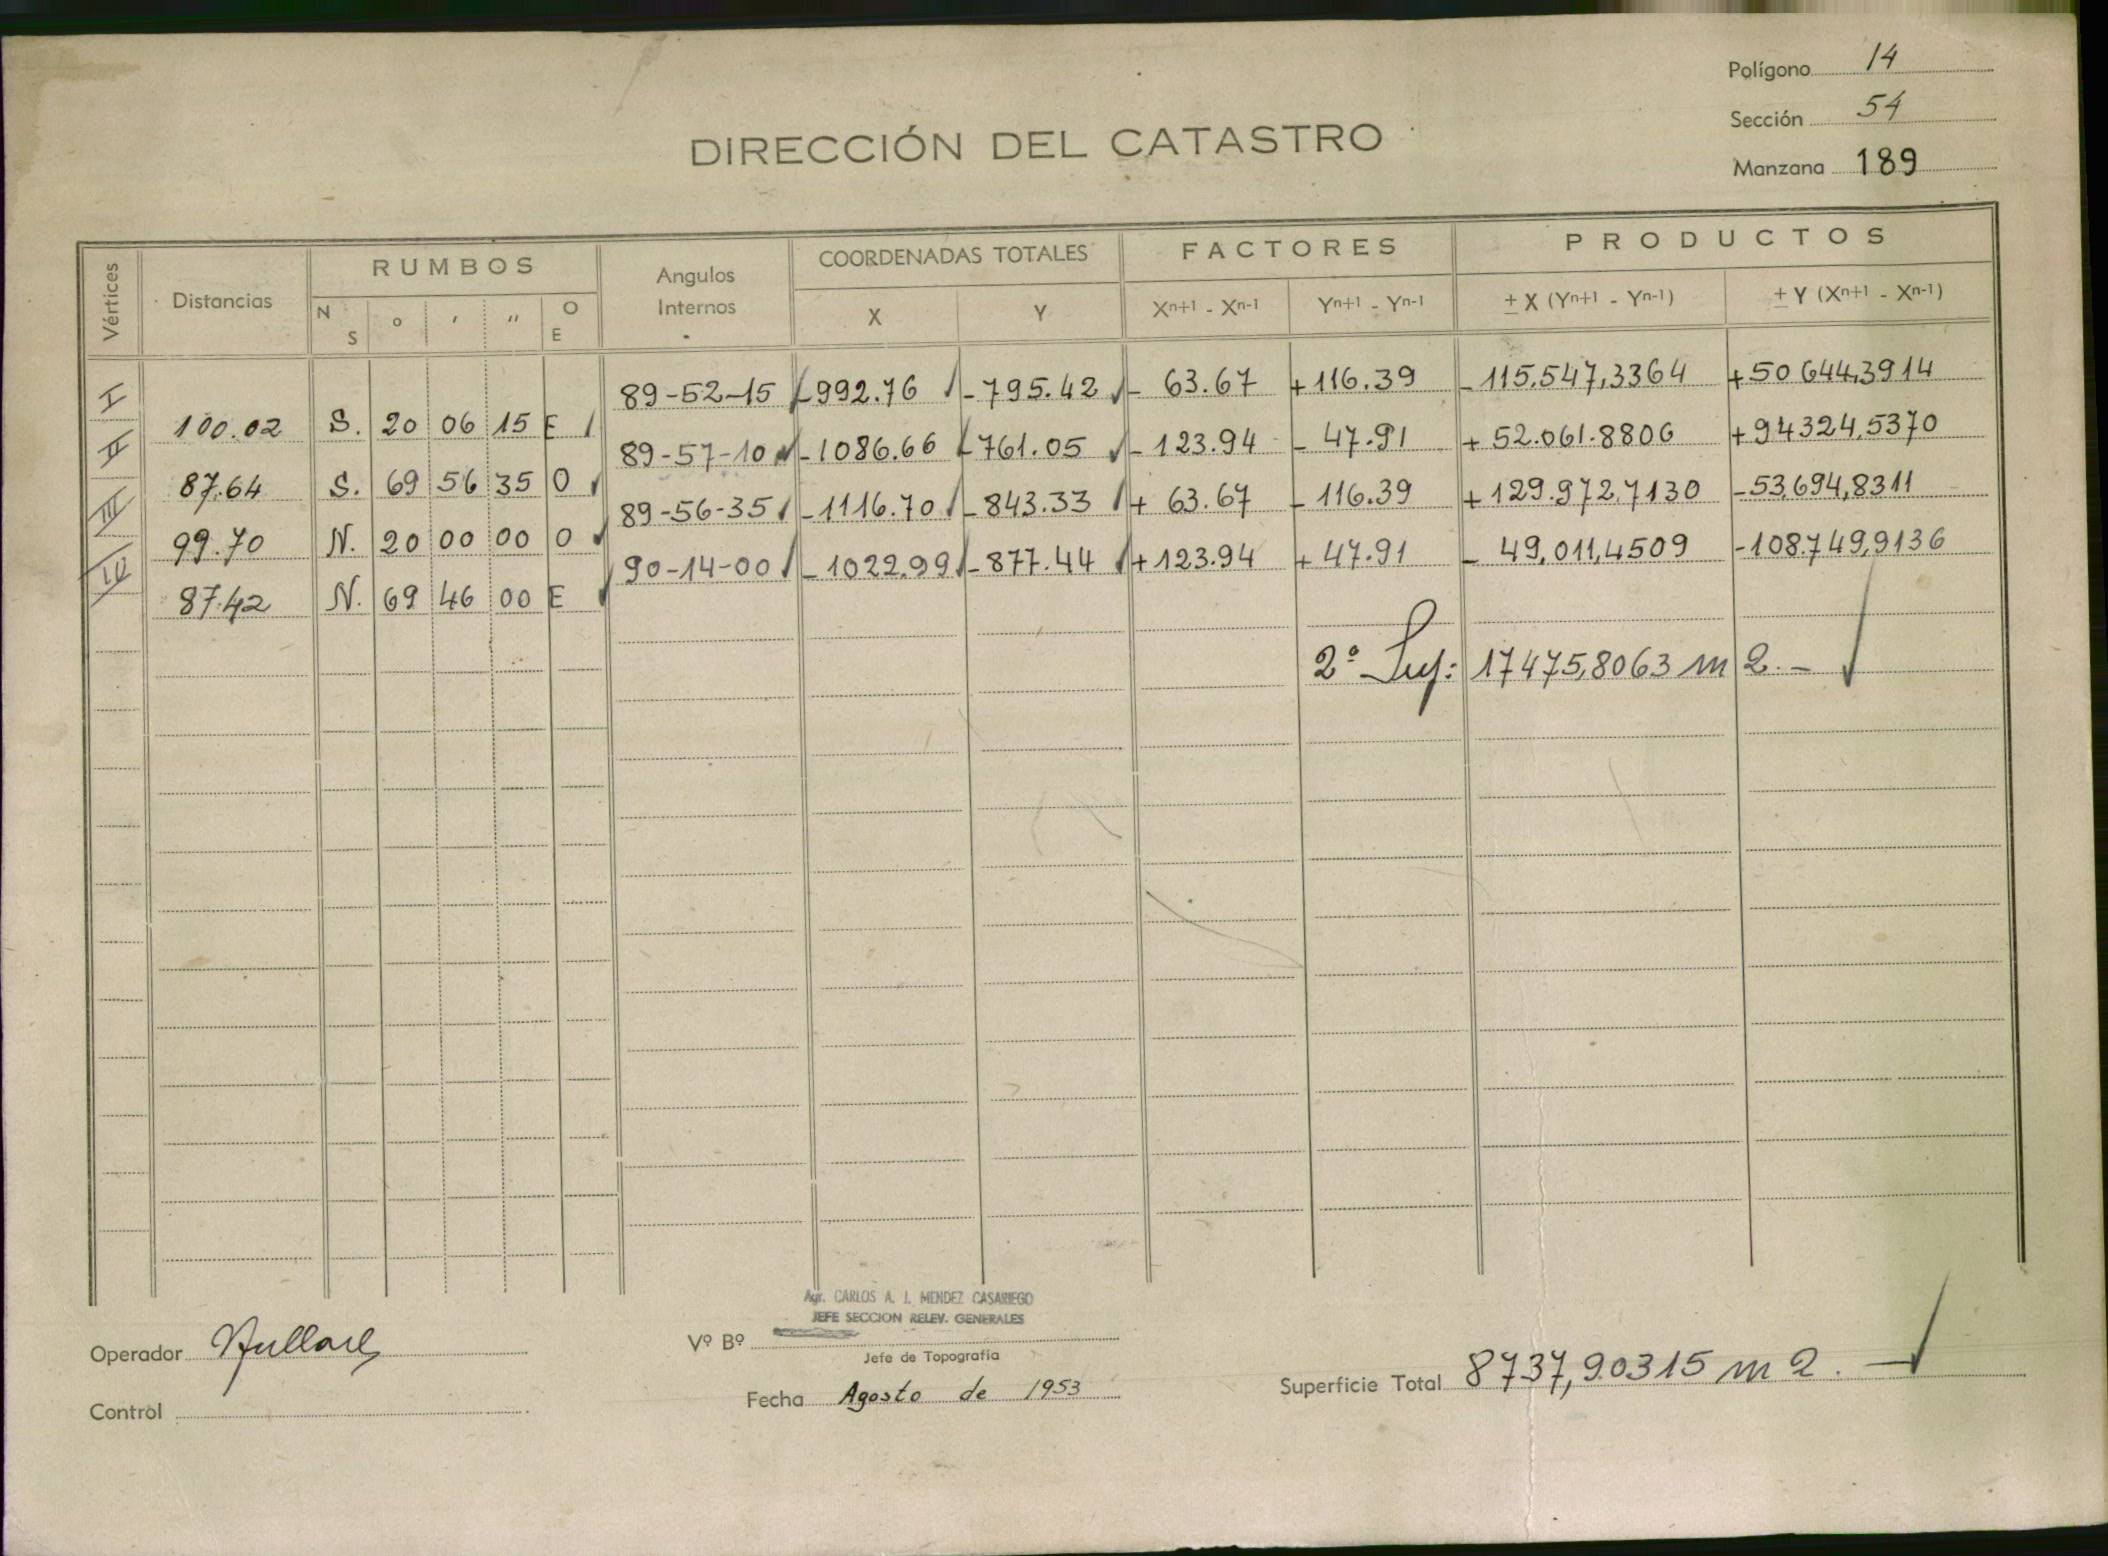 Polígono 14
Sección 54
DIRECCIÓN DEL CATASTRO
Manzana 189
Vértices Distancias RUMBOS Angulos Internos COORDENADAS TOTALES FACTORES PRODUCTOS
N S ° ' '' O E X Y Xn+1 - Xn-1 Yn+1 - Yn-1 ± X (Yn+1 - Yn-1) ± Y (Xn+1 - Xn-1)
I 89-52-15 -992.76 -795.42 - 63.67 +116.39 -115,547,3364 +50644,3914
100.02 S. 20 06 15 E
II 89-57-10 -1086.66 -761.05 - 123.94 - 47.91 + 52.061.8806 +94324,5370
87.64 S. 69 56 35 O
III 89-56-35 -1116.70 -843.33 + 63.67 - 116.39 +129.972,7130 -53,694,8311
99.70 N. 20 00 00 O
IV 90-14-00 -1022.99 -877.44 +123.94 + 47.91 - 49,011,4509 -108.749,9136
87.42 N. 69 46 00 E
2º Sup: 17475,8063 m2.-
Agr. CARLOS A. J. MENDEZ CASARIEGO
JEFE SECCION RELEV. GENERALES
Operador
Vº Bº
Jefe de Topografía
Control
Fecha Agosto de 1953
Superficie Total 8737,90315 m2.